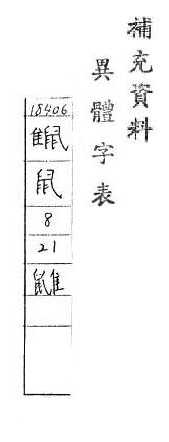 補充資料
異體字表
18406
⿰隹鼠
鼠
8
21
⿰鼠隹